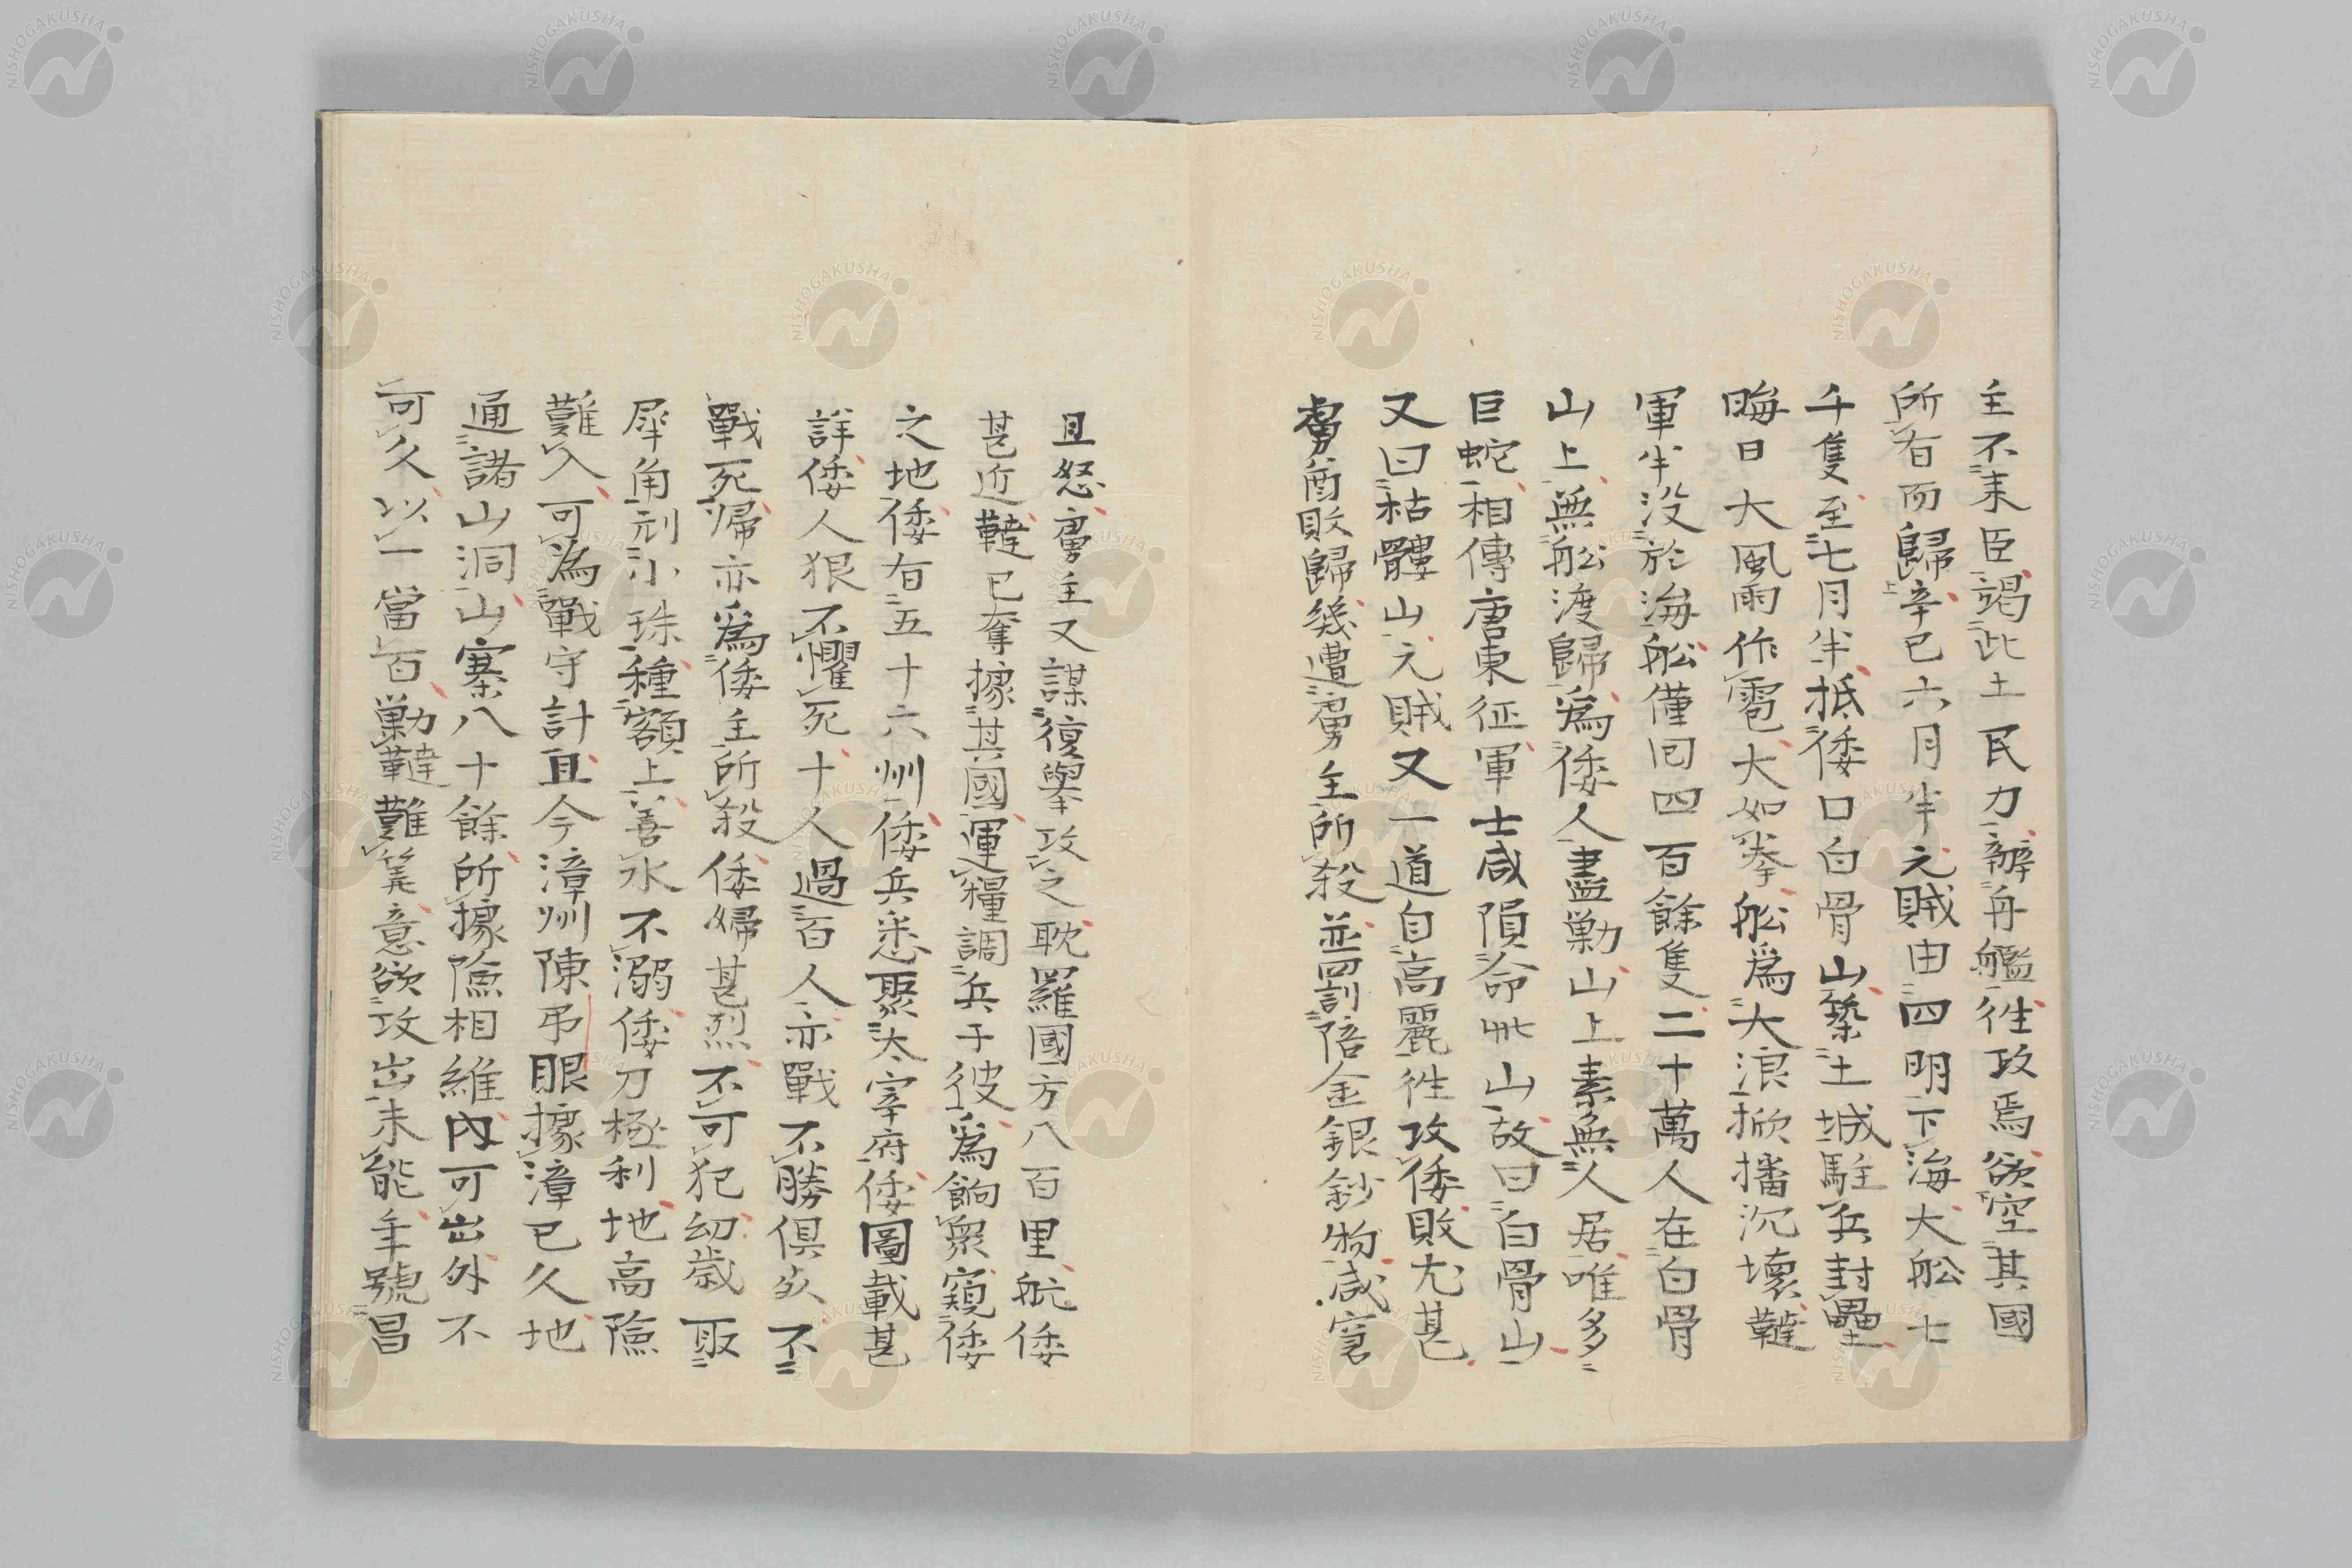 主不来臣竭此土民力辦舟艦徃攻焉欲空其國
所有而歸辛巳六月半元賊由四明下海大舩七
千隻至七月半抵倭口白骨山築土城駐兵封壘
晦日大風雨作雹大如拳舩爲大浪掀播沉壞韃
軍半没於海舩僅回四百餘隻二十萬人在白骨
山上無舩渡歸爲倭人盡勦山上素無人居唯多
巨蛇相傳唐東征軍士咸隕命此山故曰白骨山
又曰枯髏山元賊又一道自高麗徃攻倭敗尤甚
虜酋敗歸幾遭虜主所殺並罰陪金銀鈔物咸窘
且怒虜主又謀復舉攻之耽羅國方八百里航倭
甚近韃已奪據其國運糧調兵于彼爲餉衆窺倭
之地倭有五十六州倭兵悉聚太宰府倭圖載甚
詳倭人狠不懼死十人過百人亦戰不勝俱死不
戰死歸亦爲倭主所殺倭婦甚烈不可犯幼歲取
犀角刓小珠種額上善水不溺倭刀極利地高險
難入可為戰守計且今漳州陳弔眼據漳已久地
通諸山洞山寨八十餘所據險相維內可出外不
可久以一當百勦韃難筭意欲攻出未能年號昌
NISHOGAKUSHA